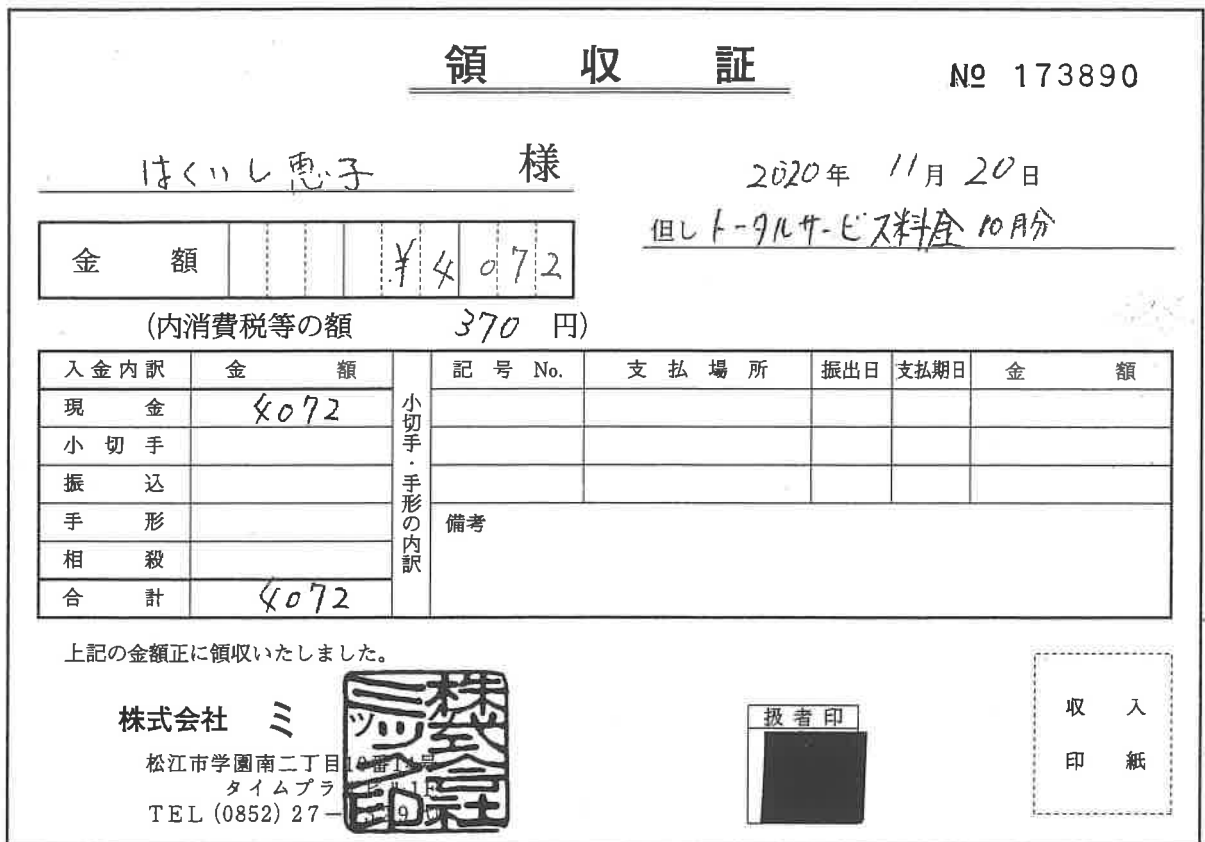 領収証
№ 173890
はくいし恵子 様
2020年 11月 20日
但し トータルサービス料金 10月分
金額 ¥4072
(内消費税等の額 370 円)
入金内訳 金額
現金 4072
小切手
振込
手形
相殺
合計 4072
小切手・手形の内訳
記号 No. 支払場所 振出日 支払期日 金額
備考
上記の金額正に領収いたしました。
株式会社 ミ
松江市学園南二丁目
タイムプラ
TEL (0852) 27-
扱者印
収入
印紙